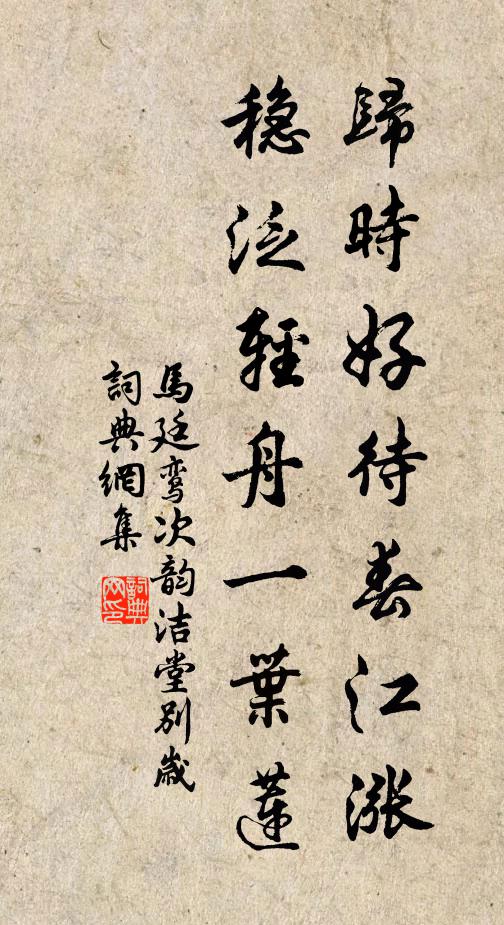 歸時好待春江漲
穩泛輕舟一葉蓮
馬廷鸾次韵洁堂别歲
詞典網集
詞典網印